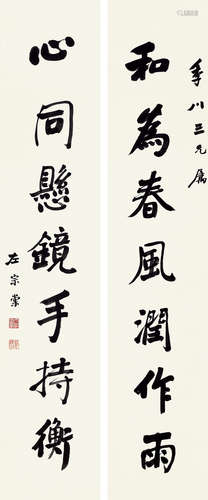 季川三兄属
和為春風潤作雨
心同懸鏡手持衡
左宗棠